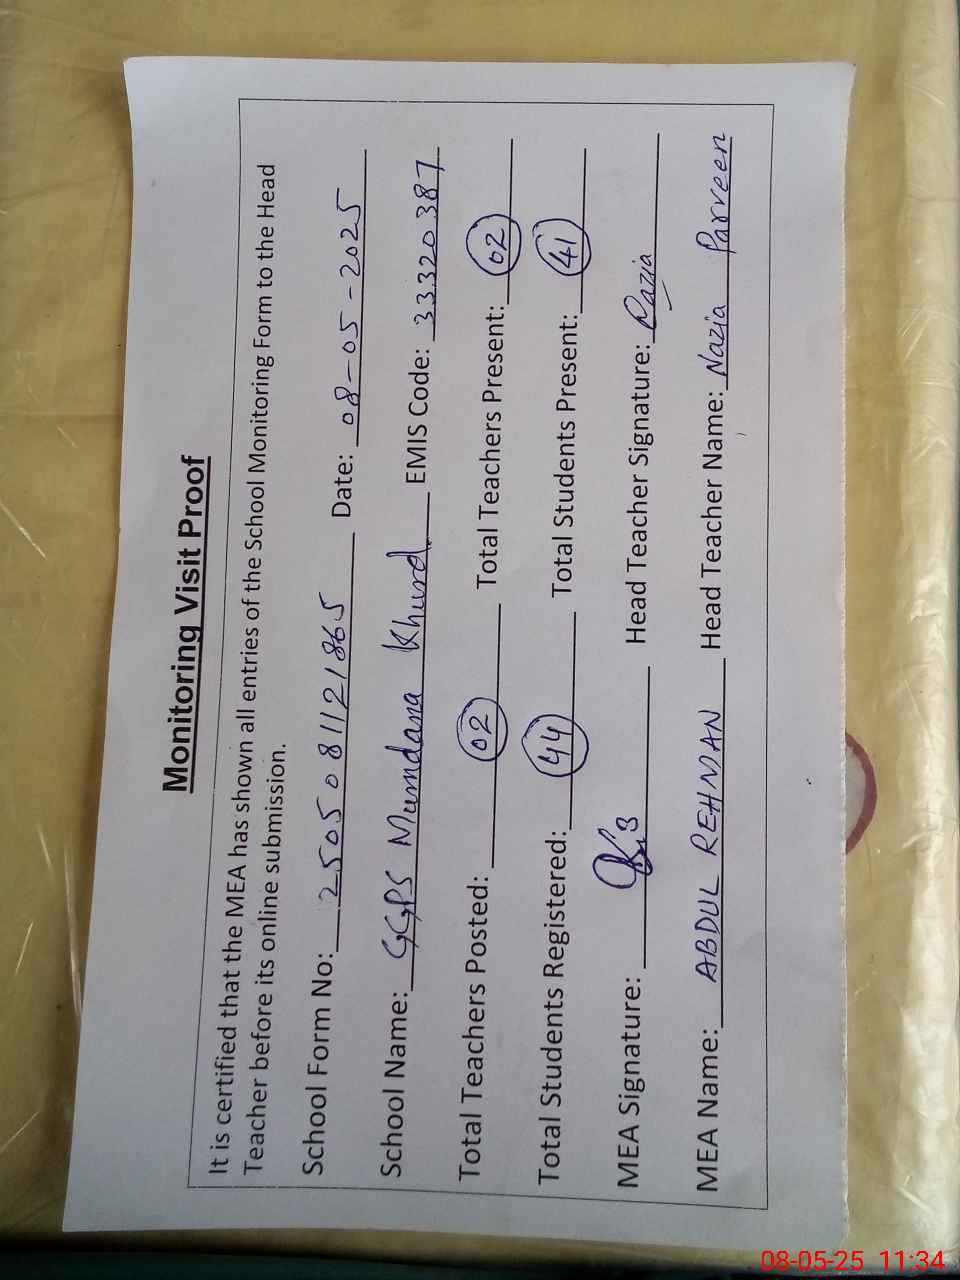 Monitoring Visit Proof
It is certified that the MEA has shown all entries of the School Monitoring Form to the Head
Teacher before its online submission.
School Form No: 2505081121865 Date: 08-05-2025
School Name: GGPS Mundana Khurd. EMIS Code: 33320387
Total Teachers Posted: 02 Total Teachers Present: 02
Total Students Registered: 44 Total Students Present: 41
MEA Signature: Head Teacher Signature: Nazia
MEA Name: ABDUL REHMAN Head Teacher Name: Nazia Parveen
08-05-25 11:34